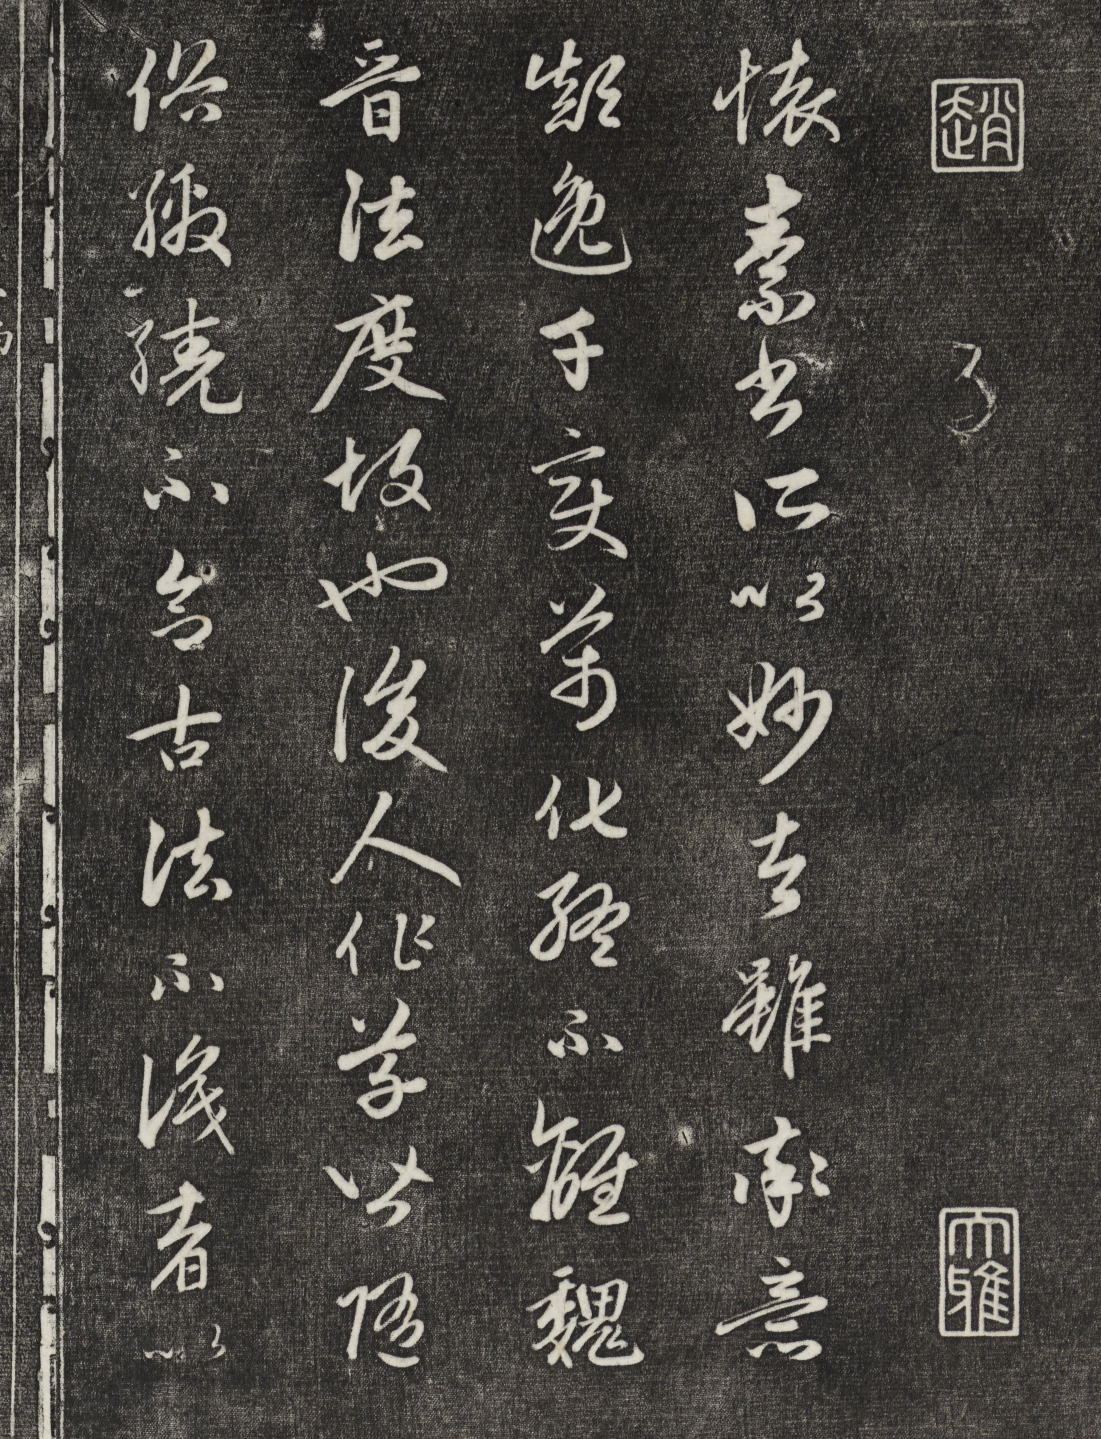 趙
大雅
懷素書所以妙者雖率意
顛逸千變萬化終不離魏
晉法度故也後人作草皆隨
俗繳繞不合古法不識者以